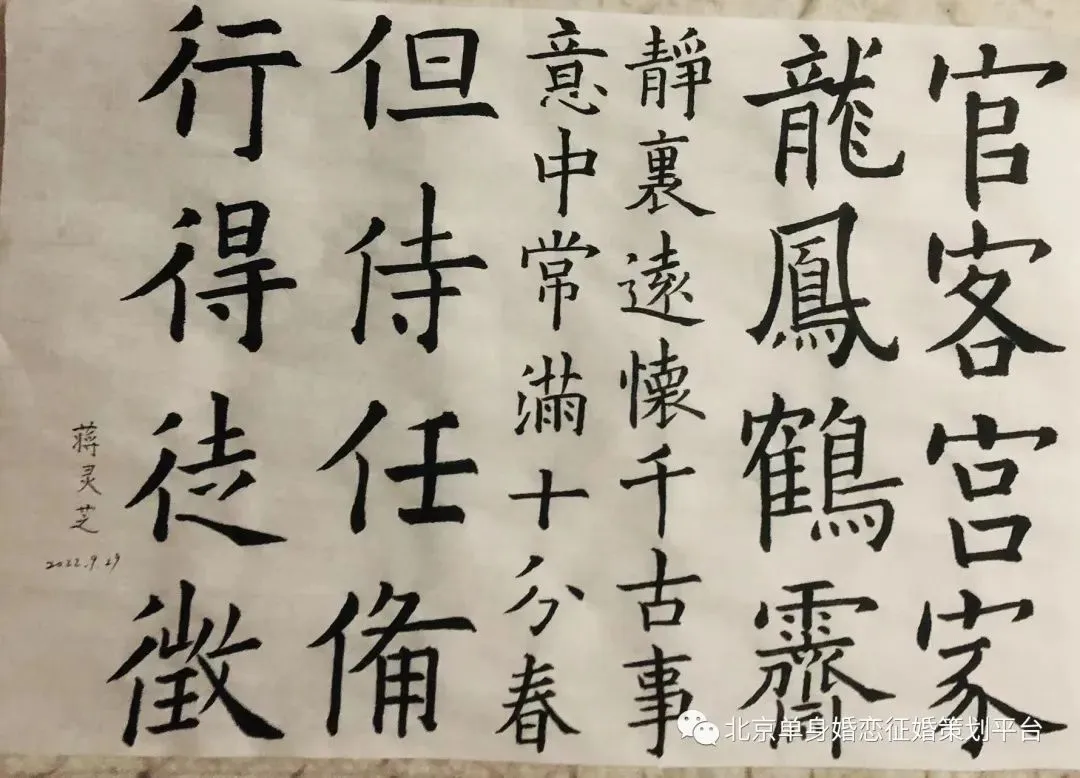 官客宫家
龍鳳鶴霽
靜裏遠懷千古事
意中常滿十分春
但侍任備
行得徒徵
蒋灵芝
2022.9.29
北京单身婚恋征婚策划平台